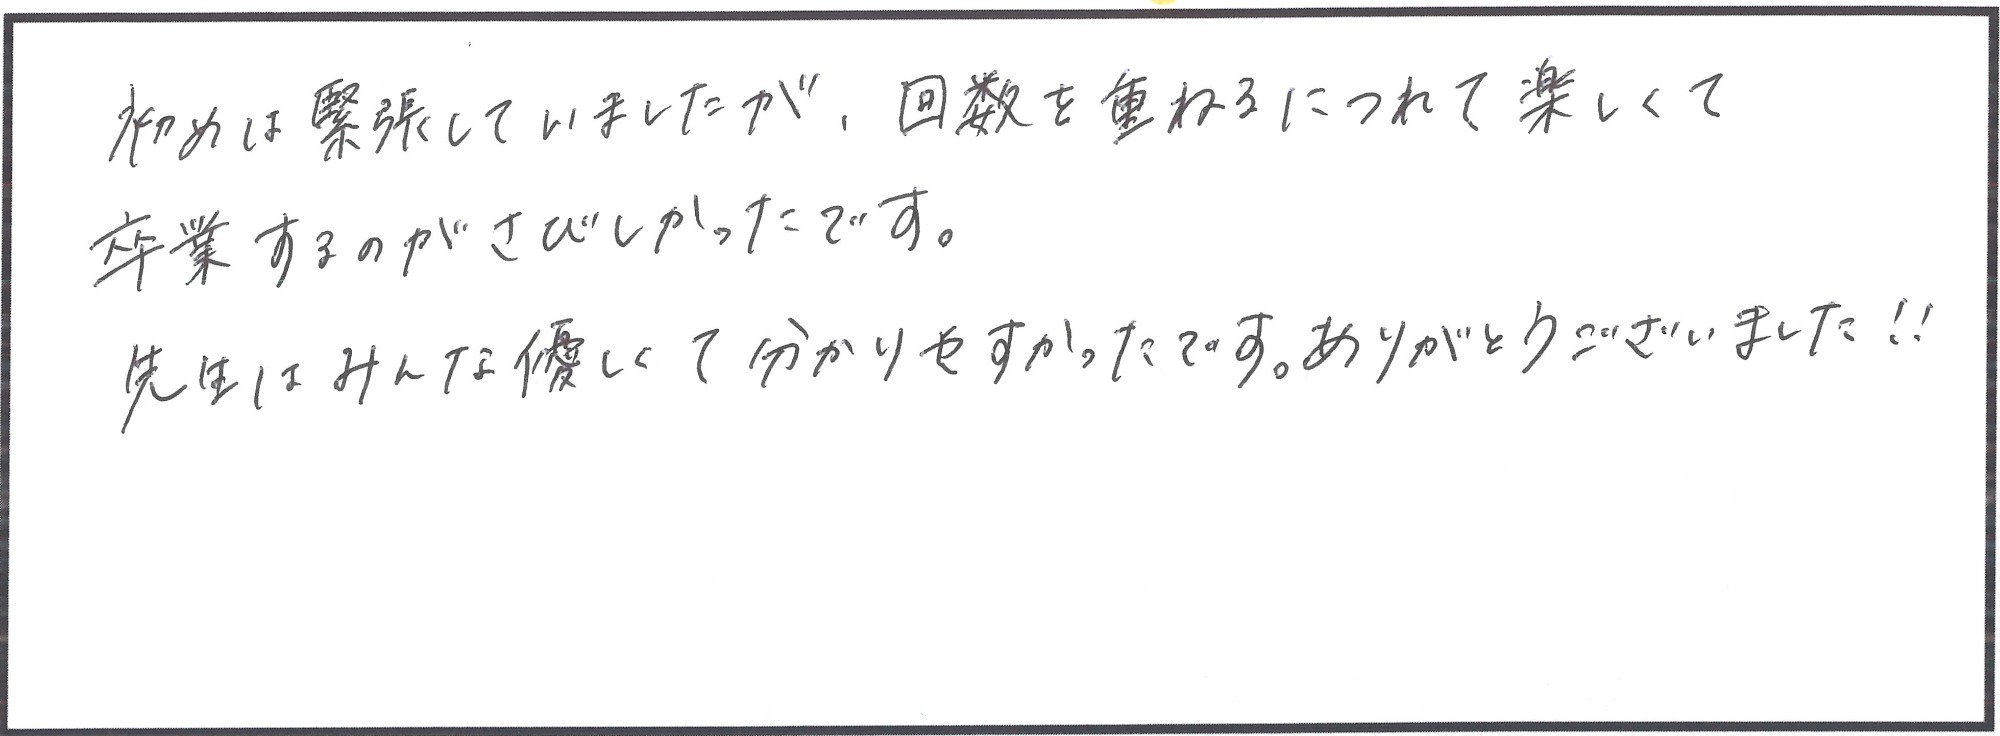 初めは緊張していましたが、回数を重ねるにつれて楽しくて
卒業するのがさびしかったです。
先生はみんな優しくて分かりやすかったです。ありがとうございました!!